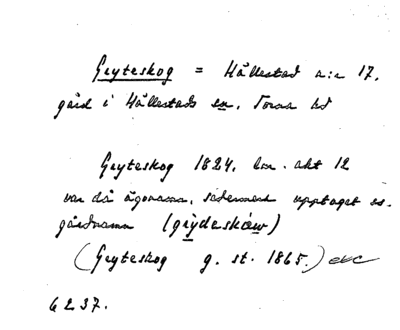 Gryteskog = Hällestad n:r 17.
gård i Hällestads sn, Torna hd
Gryteskog 1824, lm. akt 12
var då ägonamn, sedermera upptaget ss.
gårdnamn (grydeskow)
(Gryteskog g. st. 1865.)
6237.